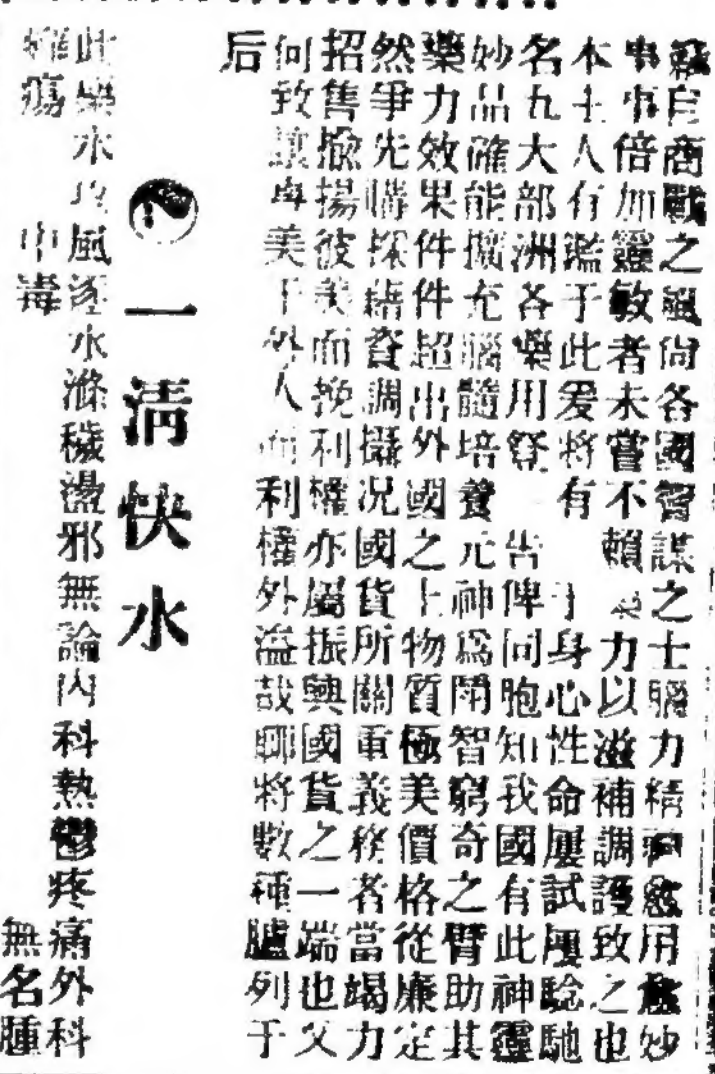 自商戰之風尚各國智謀之士腦力精神愈用愈妙
事事倍加靈敏者未嘗不賴藥力以滋補調護致之也
本主人有鑑于此爰將有 于身心性命屢試屢驗馳
名五大部洲各藥用登 告俾同胞知我國有此神靈
妙品確能擴充腦髓培養元神爲開智窮奇之臂助其
藥力效果件件超出外國之上物質極美價格從廉定
然爭先購採藉資調攝况國貨所關重義務者當竭力
招售揄揚彼美而挽利權亦屬振興國貨之一端也父
何致讓專美于外人而利權外溢哉聊將數種臚列于
后
一淸快水
此藥水攻風逐水滌穢盪邪無論內科熱鬱疼痛外科
瘍 中毒 無名腫